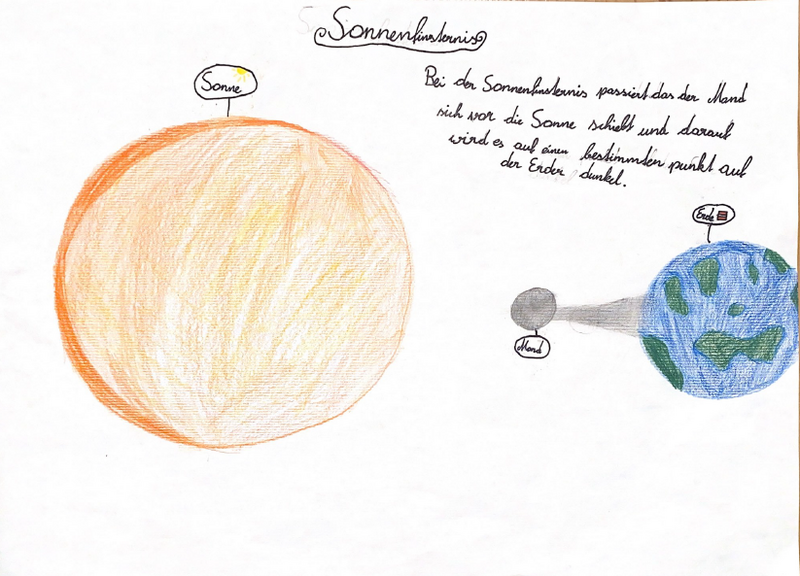 Sonnenfinsternis
Sonne
Bei der Sonnenfinsternis passiert das der Mond
sich vor die Sonne schiebt und darauf
wird es auf einen bestimmten punkt auf
der Erder dunkel.
Erde
Mond